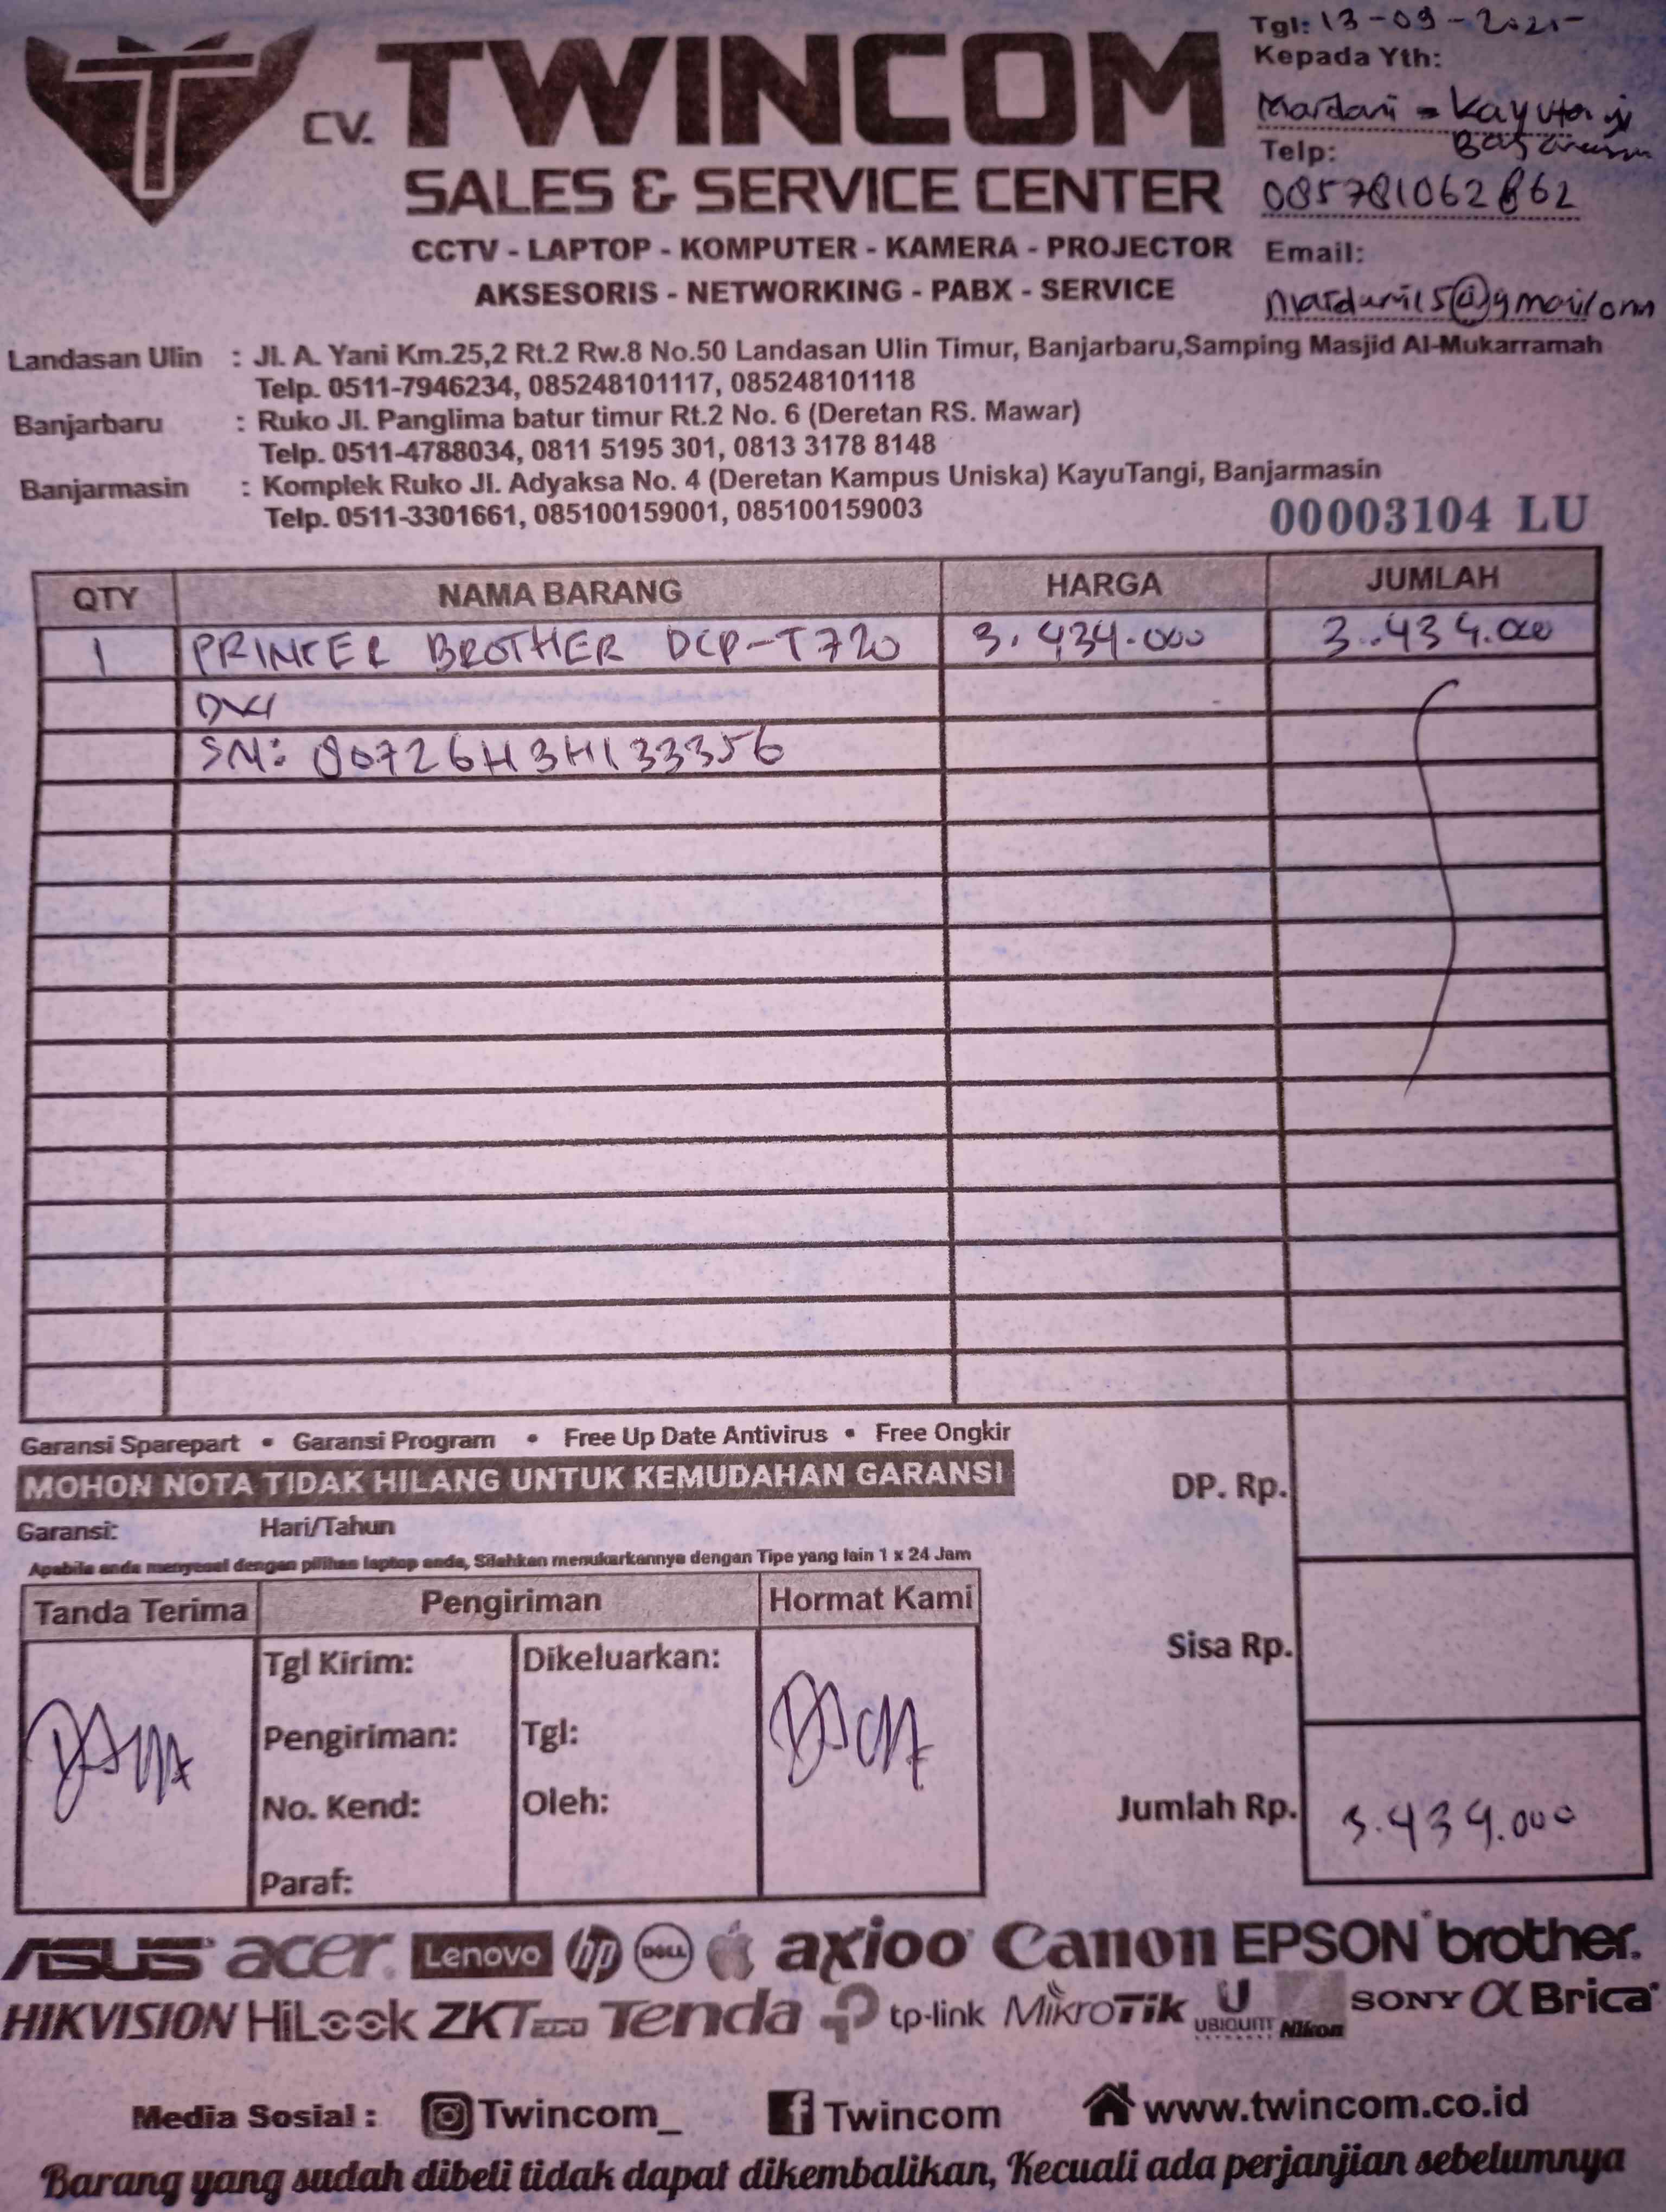 Tgl: 13-09-2021-
Kepada Yth:
Mardani - Kayutangi
Telp:
085781062862
Email:
CV. TWINCOM
SALES & SERVICE CENTER
CCTV - LAPTOP - KOMPUTER - KAMERA - PROJECTOR
AKSESORIS - NETWORKING - PABX - SERVICE
Landasan Ulin : Jl. A. Yani Km.25,2 Rt.2 Rw.8 No.50 Landasan Ulin Timur, Banjarbaru,Samping Masjid Al-Mukarramah
Telp. 0511-7946234, 085248101117, 085248101118
Banjarbaru : Ruko Jl. Panglima batur timur Rt.2 No. 6 (Deretan RS. Mawar)
Telp. 0511-4788034, 0811 5195 301, 0813 3178 8148
Banjarmasin : Komplek Ruko Jl. Adyaksa No. 4 (Deretan Kampus Uniska) KayuTangi, Banjarmasin
Telp. 0511-3301661, 085100159001, 085100159003
00003104 LU
QTY NAMA BARANG HARGA JUMLAH
1 PRINTER BROTHER DCP-T720 3.434.000 3.434.000
SN: 00726H3H133356
Garansi Sparepart • Garansi Program • Free Up Date Antivirus • Free Ongkir
MOHON NOTA TIDAK HILANG UNTUK KEMUDAHAN GARANSI
Garansi: Hari/Tahun
Apabila anda menyesal dengan pilihan laptop anda, Silahkan menukarkannya dengan Tipe yang lain 1 x 24 Jam
DP. Rp.
Sisa Rp.
Jumlah Rp. 3.434.000
Tanda Terima Pengiriman Hormat Kami
Tgl Kirim: Dikeluarkan:
Pengiriman: Tgl:
No. Kend: Oleh:
Paraf:
ASUS acer Lenovo hp DELL axioo Canon EPSON brother.
HIKVISION HiLook ZKTeco Tenda tp-link MikroTik U UBIQUITI NETWORKS Nikon SONY α Brica
Media Sosial : Twincom_ Twincom www.twincom.co.id
Barang yang sudah dibeli tidak dapat dikembalikan, Kecuali ada perjanjian sebelumnya